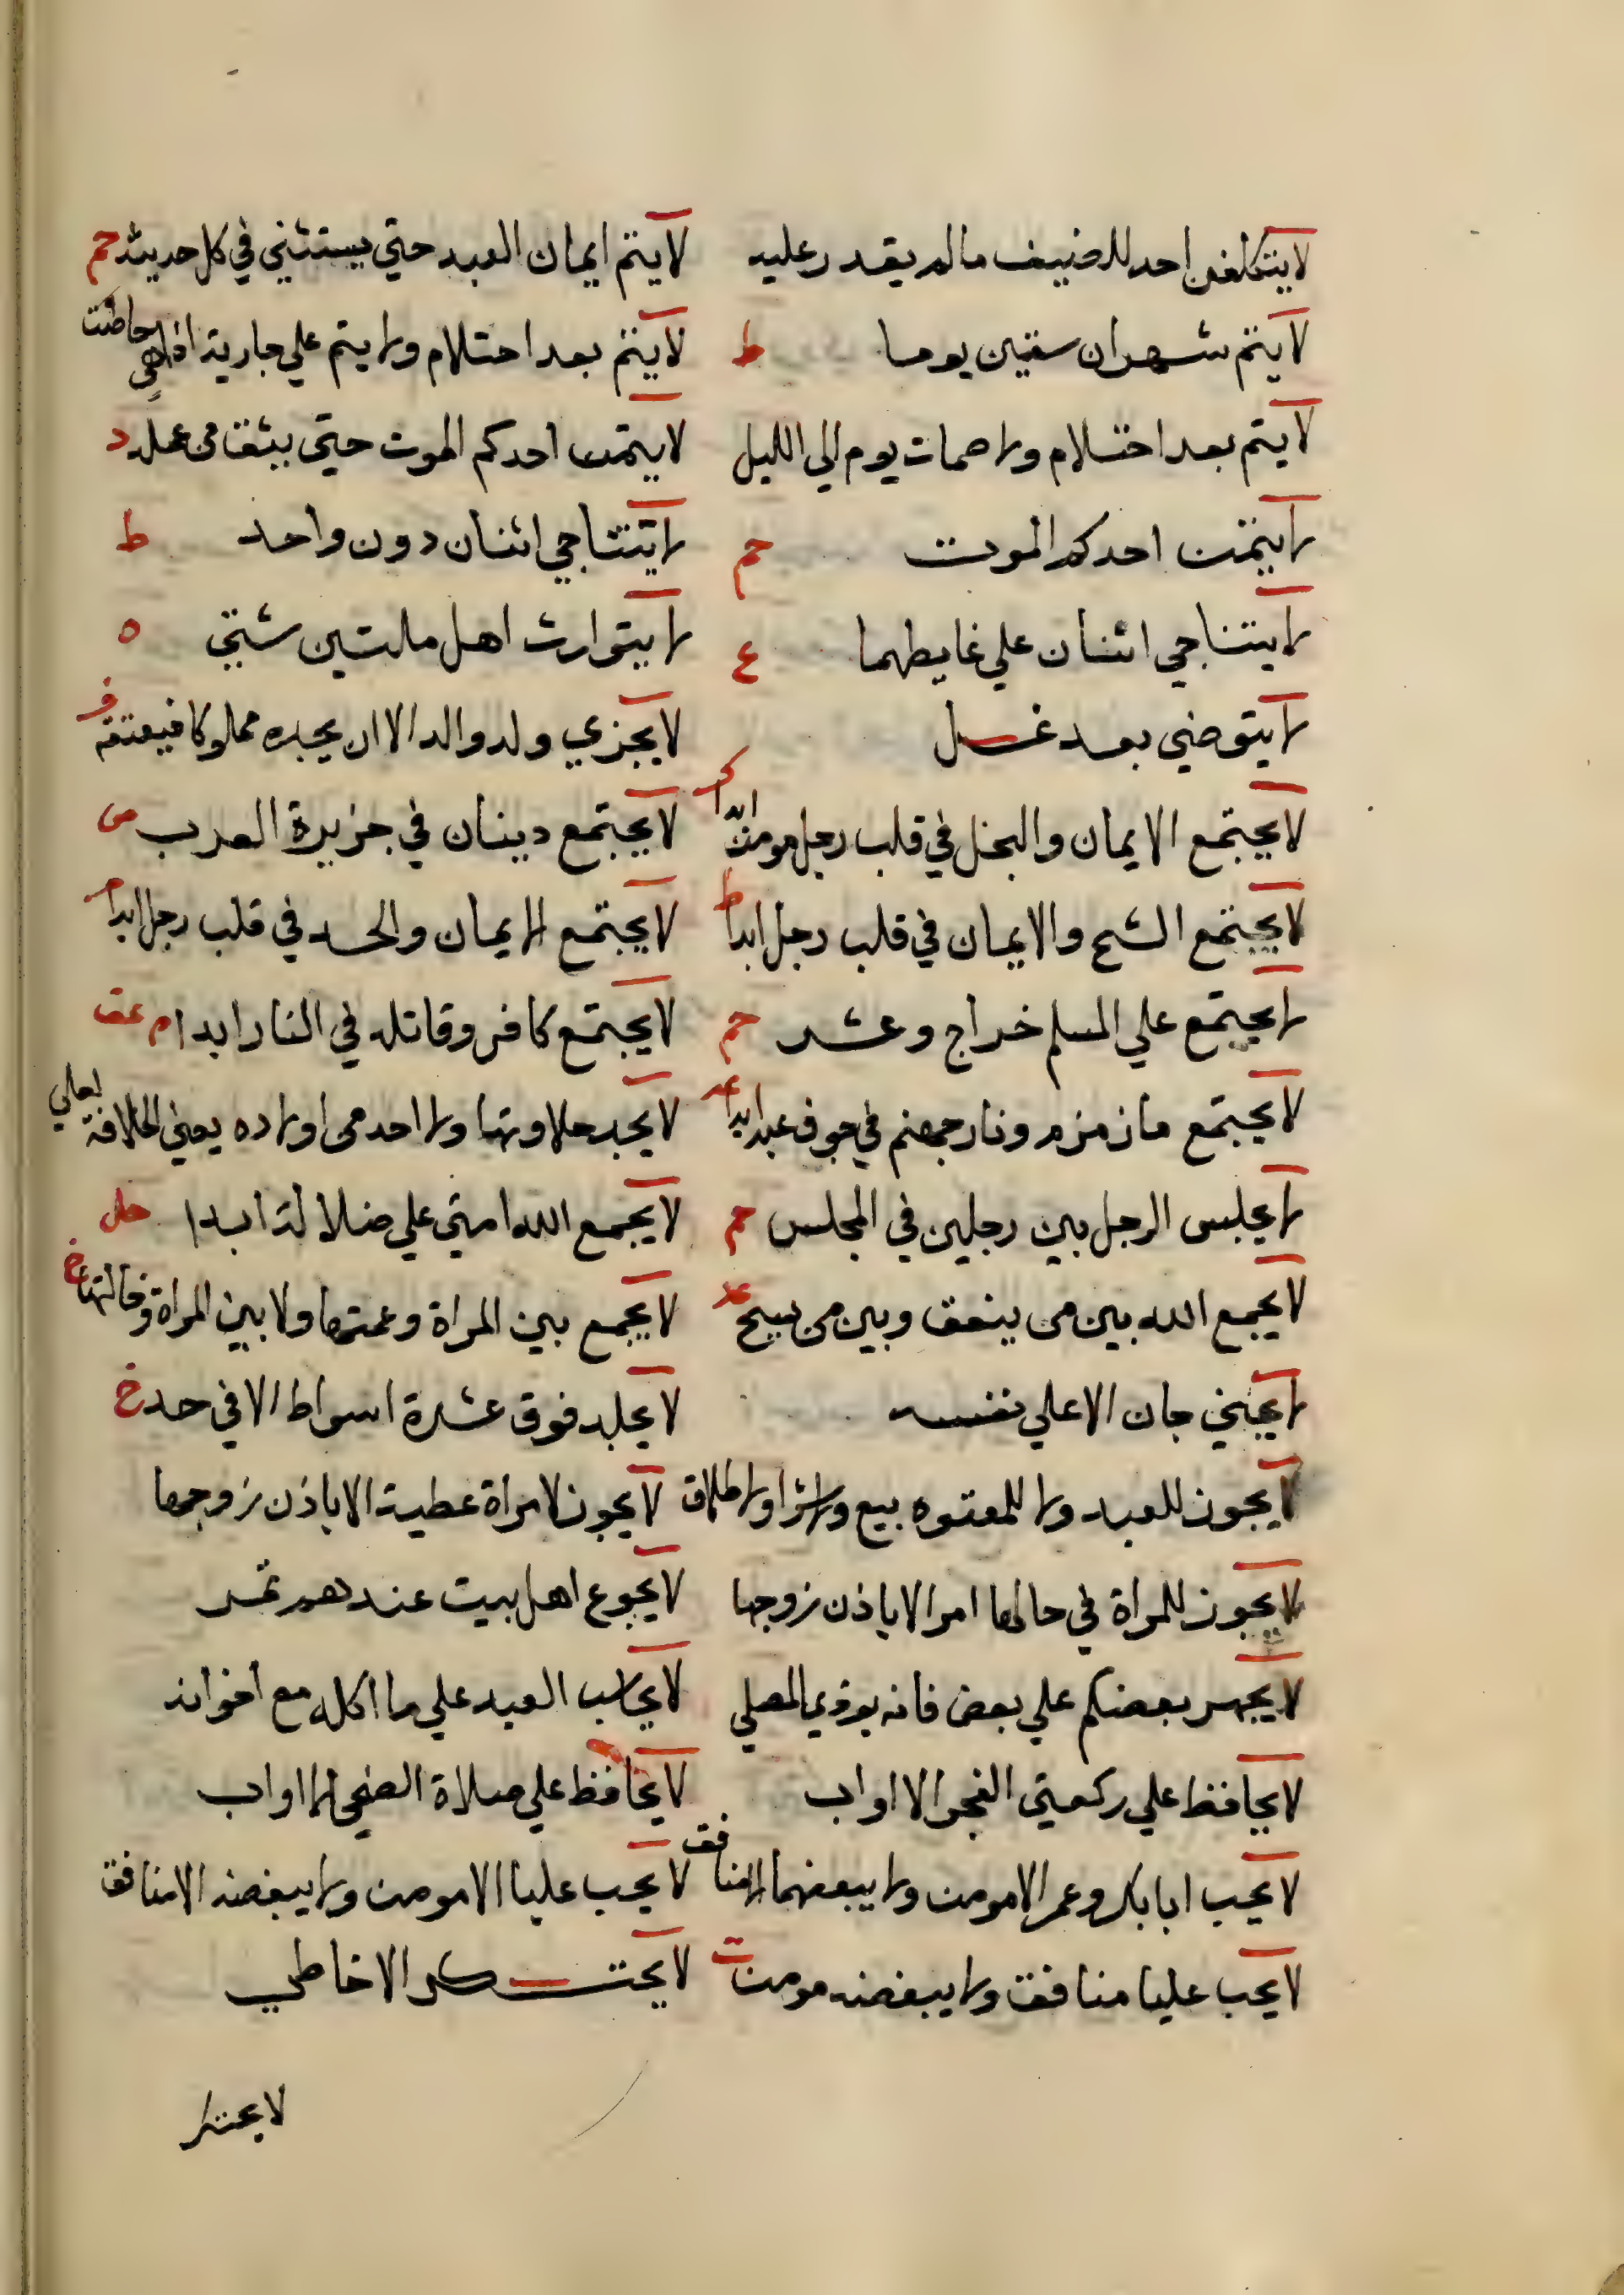 لا يتكلفن احد للضيف مالم يقدر عليه
لا يتم ايمان العبد حتي يستثني في كل حديثه حم
لا يتم شهران ستين يوما ط
لا يتم بعد احتلام ولا يتم علي جارية اذا هي حاضت
لا يتم بعد احتلام ولا صمات يوم الي الليل
لا يتمن احدكم الموت حتي يثق من عمله د
لا يتمن احدكم الموت حم
لا يتناجي اثنان دون واحد ط
لا يتناجي اثنان علي غايطهما ع
لا يتوارث اهل ملتين شتي ه
لا يتوضي بعد غسل
لا يجزي ولد والد الا ان يجده مملوكا فيعتقه
لا يجتمع الايمان والبخل في قلب رجل مومن ابدا
لا يجتمع دينان في جزيرة العرب
لا يجتمع الشح والايمان في قلب رجل ابدا ط
لا يجتمع الايمان والحسد في قلب رجل ابدا
لا يجتمع علي المسلم خراج وعشر حم
لا يجتمع كافر وقاتله في النار ابدا م عق
لا يجتمع ما زمزم ونار جهنم في جوف عبد ابدا
لا يجد حلاوتها ولا احد من اولاده يعني الخلافة
لا يجلس الرجل بين رجلين في المجلس حم
لا يجمع الله امتي علي ضلالة ابدا حل
لا يجمع الله بين من ينعق وبين من يسبح عد
لا يجمع بين المراة وعمتها ولا بين المراة وخالتها خ
لا يجني جان الا علي نفسه
لا يجلد فوق عشرة اسواط الا في حد خ
لا يجوز للعبد ولا للمعتوه بيع ولا شرا ولا طلاق
لا يجوز لامراة عطية الا باذن زوجها
لا يجوز للمراة في حالها امر الا باذن زوجها
لا يجوع اهل بيت عندهم تمر
لا يجهر بعضكم علي بعض فانه يوذي المصلي
لا يحاسب العبد علي ما اكله مع اخوانه
لا يحافظ علي ركعتي الفجر الا اواب
لا يحافظ علي صلاة الضحي الا اواب
لا يحب ابا بكر وعمر الا مومن ولا يبغضهما الا منافق
لا يحب عليا الا مومن ولا يبغضه الا منافق
لا يحب عليا منافق ولا يبغضه مومن ت
لا يحتكر الا خاطي
لا يحتكر